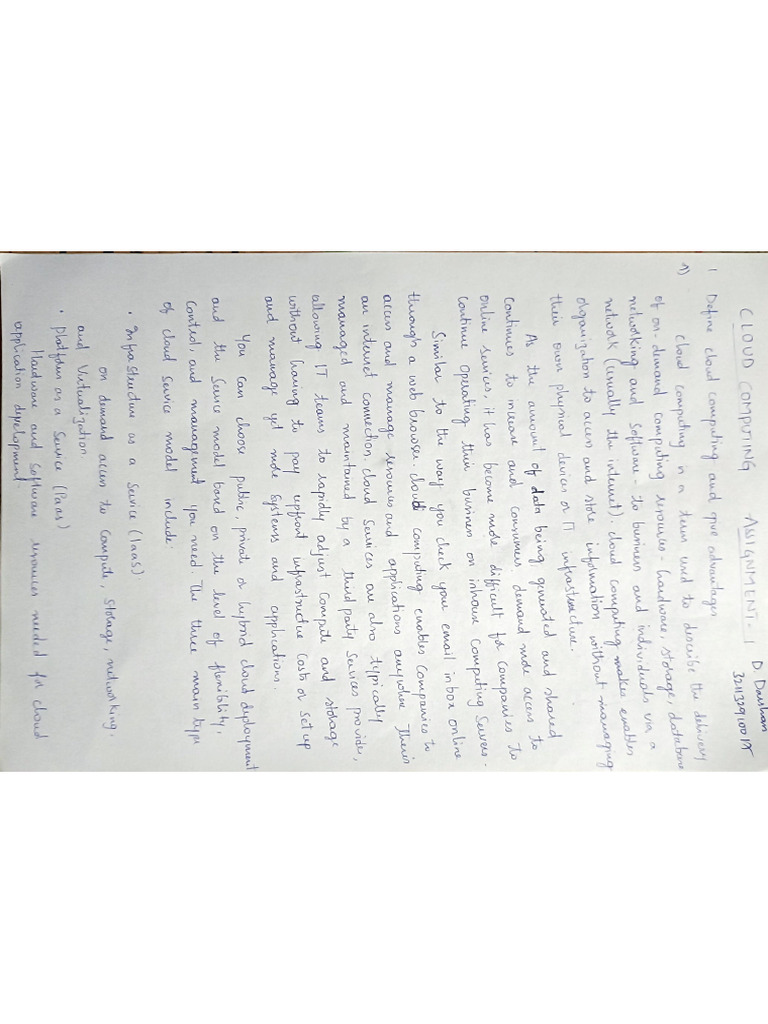 CLOUD COMPUTING ASSIGNMENT - 1
D. Darshan
1 Define cloud computing and give advantages
1) Cloud computing is a term used to describe the delivery
of on-demand computing resources - hardware, storage, database
networking and Software - to business and individuals via a
network (usually the internet). cloud computing makes enables
organization to access and store information without managing
their own physical devices or IT infrastructure.
As the amount of data being generated and shared
continues to increase and consumers demand more access to
online services, it has become more difficult for companies to
continue operating their business on inhouse Computing Servers.
Similar to the way you check your email inbox online
through a web browser. cloud computing enables Companies to
access and manage resources and applications anywhere Theirs
an internet connection. cloud Services are also typically
managed and maintained by a third party Services provider,
allowing IT teams to rapidly adjust compute and storage
without having to pay upfront infrastructure costs or set up
and manage yet more systems and applications.
You can choose public, private or hybrid cloud deployment
and the Service model based on the level of flexibility,
control, and management you need. The three main type
of cloud service model include:
• Infrastructure as a Service (IaaS)
on demand access to Compute, storage, networking,
and Virtualization
• Platform as a Service (PaaS)
Hardware and Software resources needed for cloud
application development.